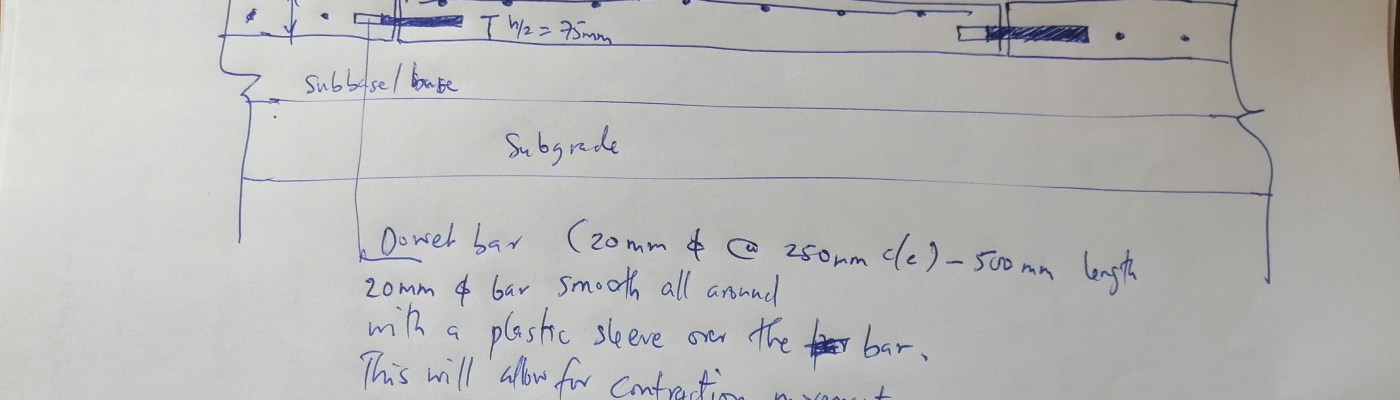 T h/2 = 75mm
Subbase/base
Subgrade
Dowel bar (20mm ϕ @ 250mm c/c) – 500mm length
20mm ϕ bar smooth all around
with a plastic sleeve over the bar.
This will allow for contraction movement